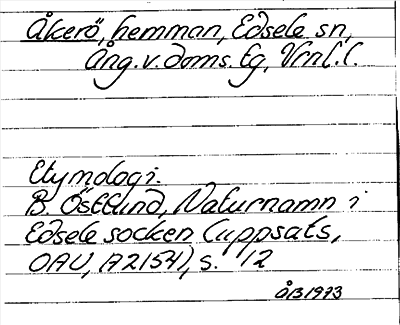 Åkerö, hemman, Edsele sn,
Ång. v. doms. tg, Vrnl. l.
Etymologi.
B. Östlund, Naturnamn i
Edsele socken (uppsats,
OAU, A2154), s. 12
ÅB 1973